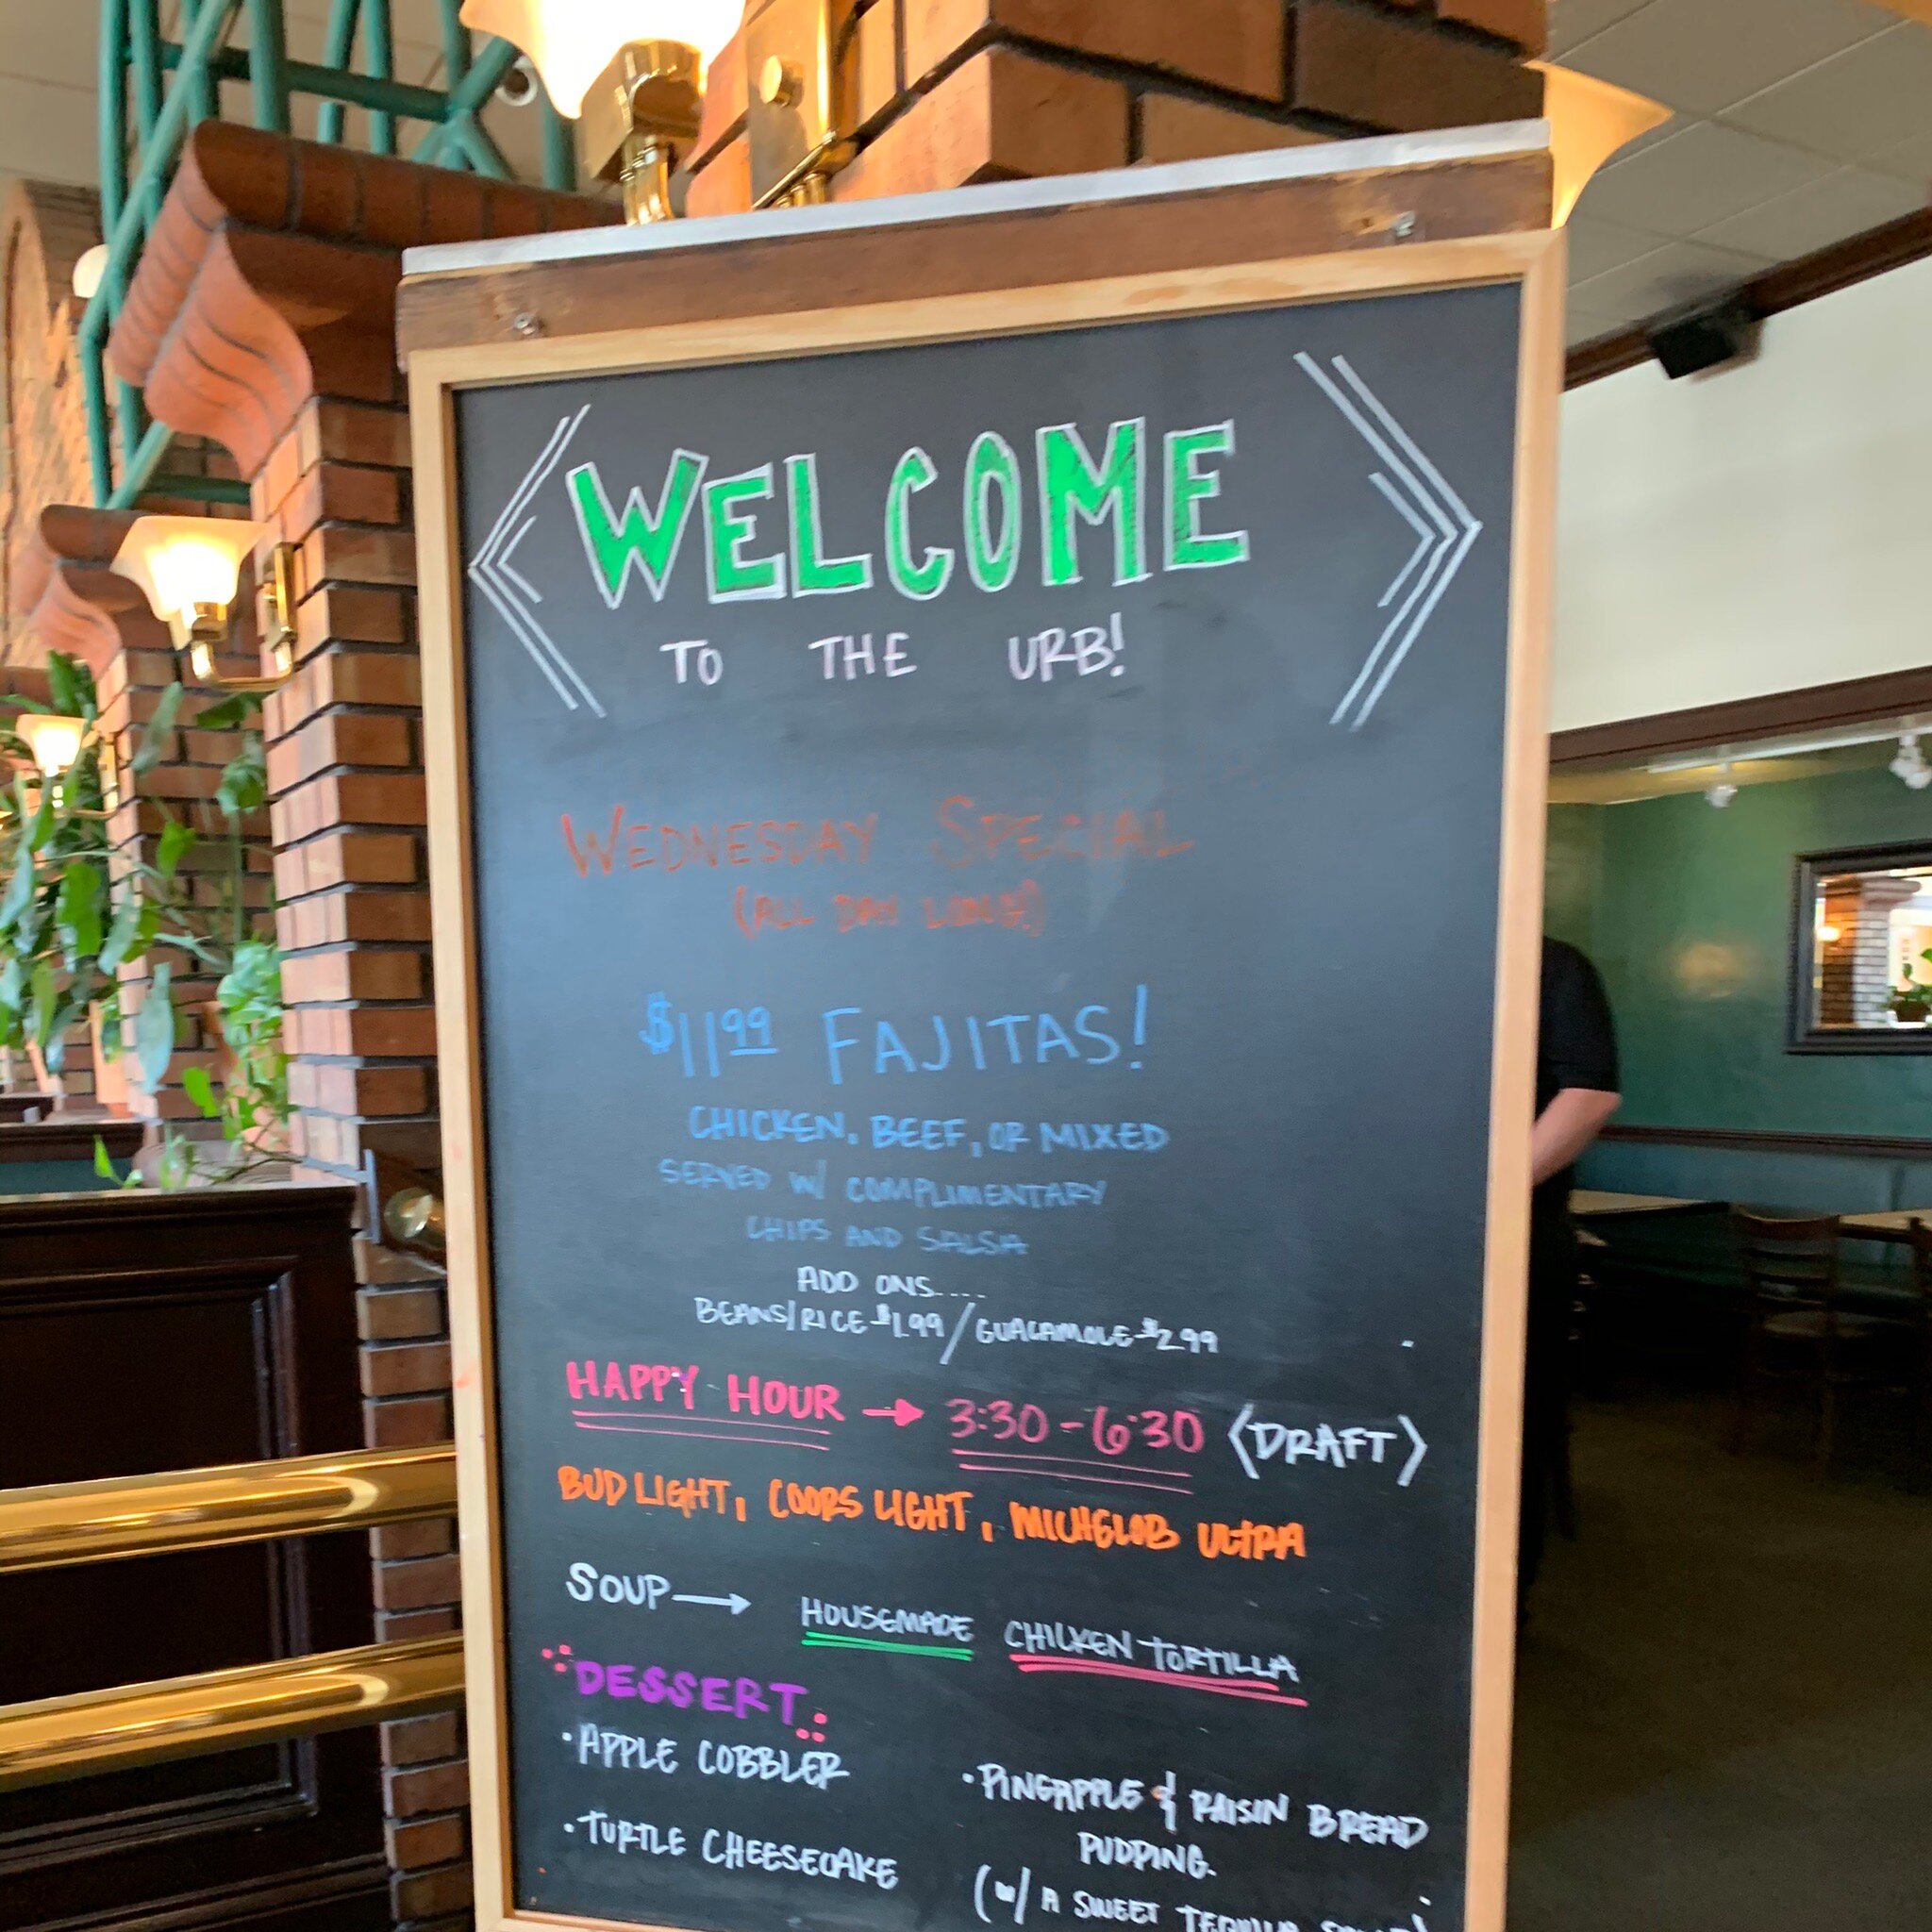 WELCOME
TO THE URB!
WEDNESDAY SPECIAL
(ALL DAY LONG!)
$11.99 FAJITAS!
CHICKEN, BEEF, OR MIXED
SERVED W/ COMPLIMENTARY
CHIPS AND SALSA
ADD ONS....
BEANS/RICE $1.99/GUACAMOLE $2.99
HAPPY HOUR → 3:30-6:30 <DRAFT>
BUD LIGHT, COORS LIGHT, MICHELOB ULTRA
SOUP → HOUSEMADE CHICKEN TORTILLA
DESSERT
• APPLE COBBLER
• TURTLE CHEESECAKE
• PINEAPPLE & RAISIN BREAD
PUDDING.
(W/ A SWEET TEQUILA